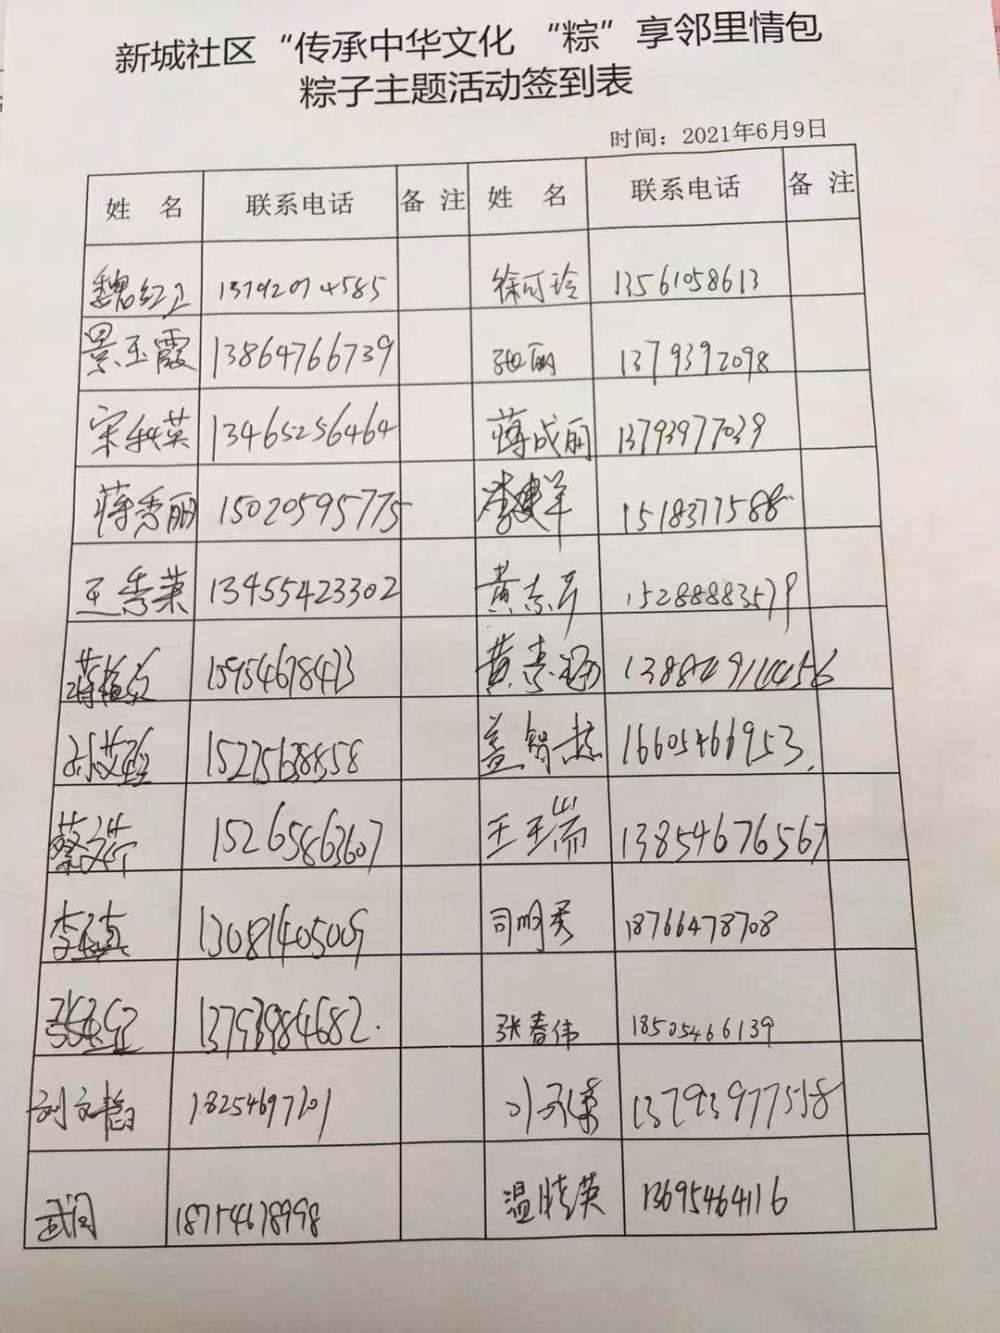 新城社区“传承中华文化 “粽”享邻里情包
粽子主题活动签到表
时间：2021年6月9日
姓 名 联系电话 备 注 姓 名 联系电话 备 注
魏红卫 13792074585 徐可玲 13561058613
景玉霞 13864766739 张丽 13793912098
宋秋英 13465256464 蒋成丽 13793977039
蒋秀丽 15020595775 李建军 15183771588
王秀荣 13455423302 黄志芹 15288883579
15954678413 黄素
15275638858 盖智 16605466953
15265863607 王玉瑞 13854676567
李 13081405009 司明 18766478708
13793984682 张春伟 18505466139
刘文慧 18254697101 13793977558
武 18754678998 温晓英 13695464116